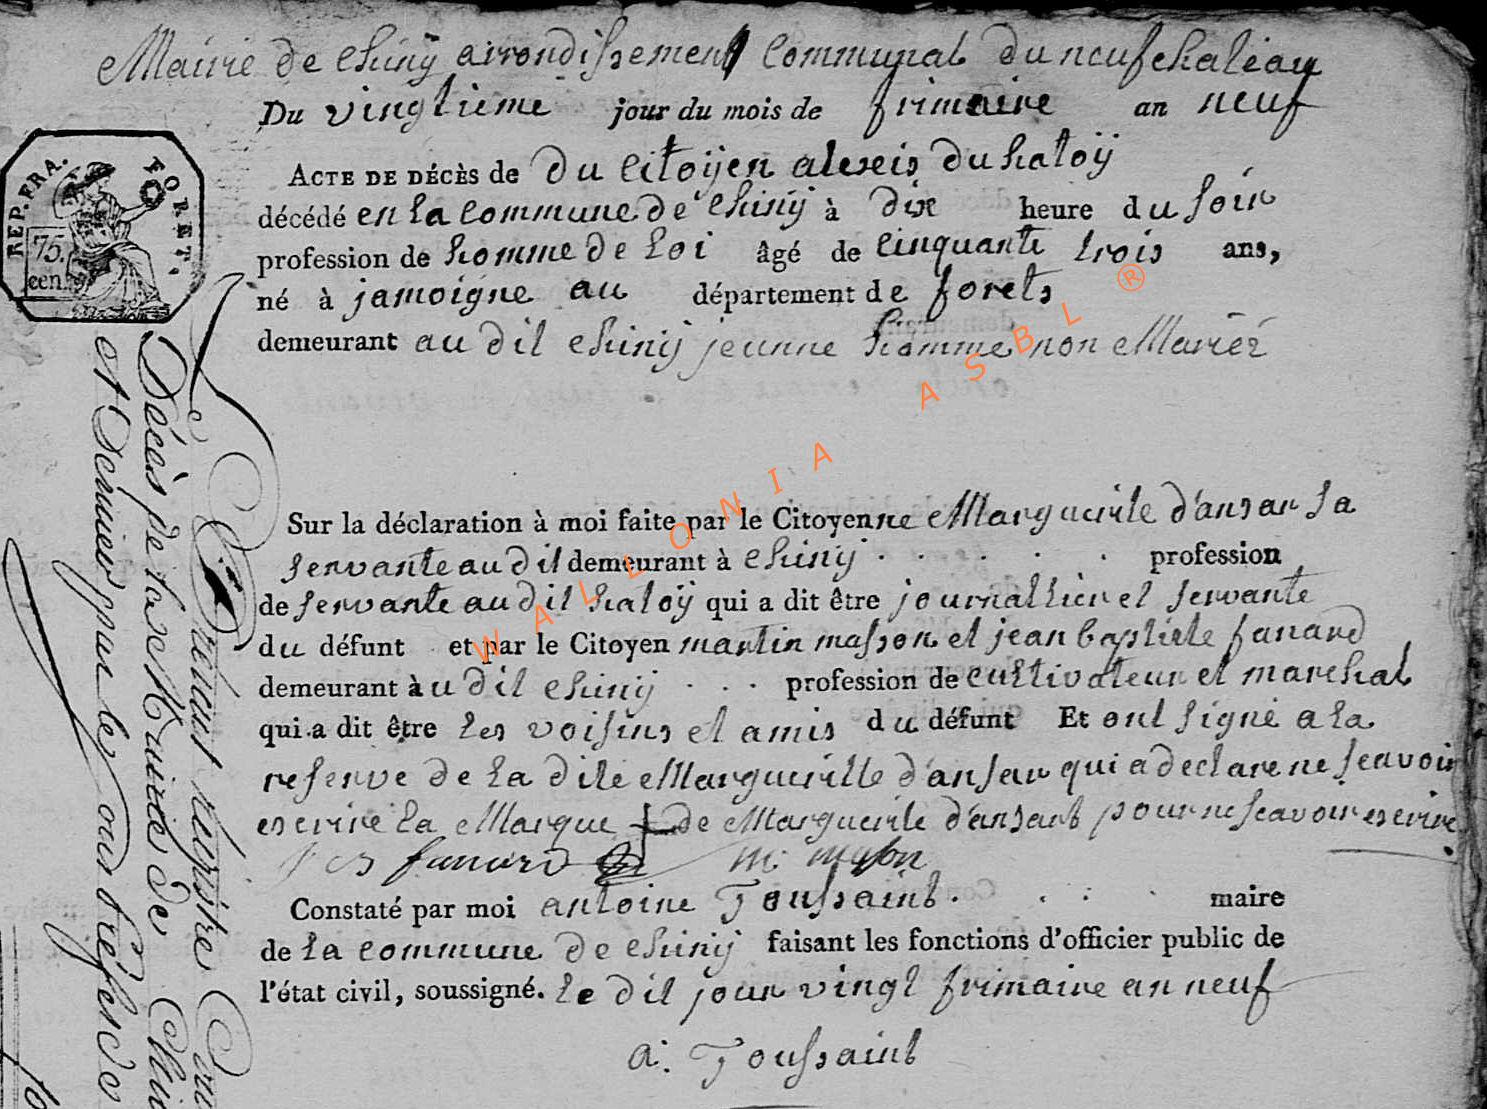 Mairie de chiny arrondissement Communal du neufchateau
Du vingtieme jour du mois de frimaire an neuf
ACTE DE DÉCÈS de du Citoÿen alexis du hatoÿ
décédé en la commune de chinÿ à dix heure du soir
profession de homme de loi âgé de Cinquante trois ans,
né à jamoigne au département de forets
demeurant au dit chinij jeunne homme non Mariéz
Sur la déclaration à moi faite par le Citoyenne Marguerite d'ansar sa
servante au dit demeurant à chinij profession
de servante au dit hatoÿ qui a dit être journallier et servante
du défunt et par le Citoyen martin masson et jean baptiste fanard
demeurant à u dit chinij profession de cultivateur et marechal
qui a dit être les voisins et amis du défunt Et ont signé a la
reserve de la dite Margueritte d'ansar qui a declare ne scavoir
escrire la Marque de Marguerite d'ansart pour ne scavoir escrire
fanard m: masson
Constaté par moi antoine Toussaint maire
de la commune de chinij faisant les fonctions d'officier public de
l'état civil, soussigné. le dit jour vingt frimaire an neuf
a: Toussaint
REP. FRA. FORET.
75.
cen.
présent registre
Décès de la ditte Mairie de Chini
et dernier par les
WALLONIA ASBL ®